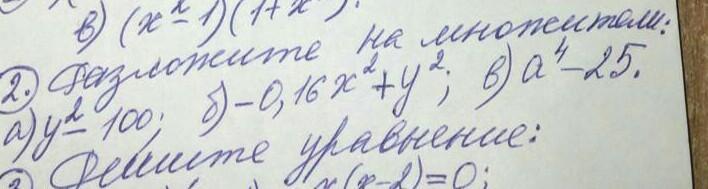 в) (x²-1)(1+x
2. Разложите на множители:
а) y²-100; б) -0,16x²+y²; в) a⁴-25.
Решите уравнение:
x(x-2)=0;